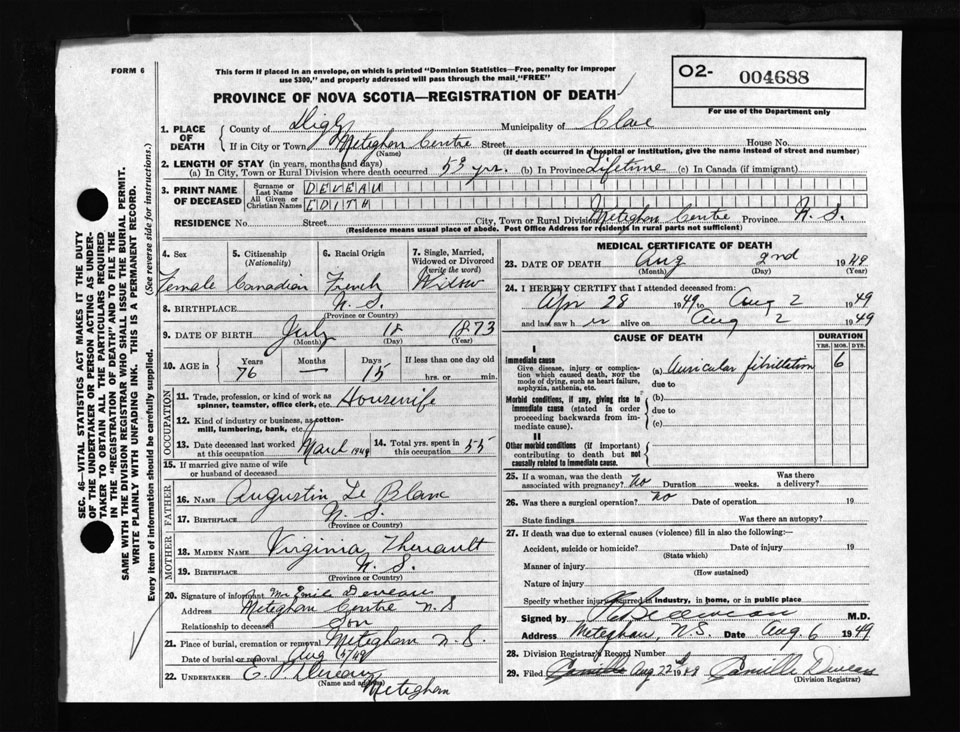 FORM 6
This form if placed in an envelope, on which is printed "Dominion Statistics—Free, penalty for improper
use $300," and properly addressed will pass through the mail "FREE"
PROVINCE OF NOVA SCOTIA—REGISTRATION OF DEATH
O2- 004688
For use of the Department only
1. PLACE OF DEATH
County of Digby Municipality of Clare
If in City or Town Meteghan Centre Street House No.
(Name) (If death occurred in a hospital or institution, give the name instead of street and number)
2. LENGTH OF STAY (in years, months and days)
(a) In City, Town or Rural Division where death occurred 53 yrs. (b) In Province Lifetime (c) In Canada (if immigrant)
3. PRINT NAME OF DECEASED
Surname or Last Name DEVEAU
All Given or Christian Names EDITH
RESIDENCE No. Street City, Town or Rural Division Meteghan Centre Province N.S.
(Residence means usual place of abode. Post Office Address for residents in rural parts not sufficient)
4. Sex 5. Citizenship (Nationality) 6. Racial Origin 7. Single, Married, Widowed or Divorced (write the word)
Female Canadian French Widow
8. BIRTHPLACE N.S.
(Province or Country)
9. DATE OF BIRTH July 18 1873
(Month) (Day) (Year)
10. AGE in Years Months Days If less than one day old
76 — 15 hrs. or min.
OCCUPATION
11. Trade, profession, or kind of work as
spinner, teamster, office clerk, etc. Housewife
12. Kind of industry or business, as cotton-
mill, lumbering, bank, etc.
13. Date deceased last worked at this occupation March 1949 14. Total yrs. spent in this occupation 55
15. If married give name of wife
or husband of deceased
FATHER
16. NAME Augustin Le Blanc
17. BIRTHPLACE N.S.
(Province or Country)
MOTHER
18. MAIDEN NAME Virginia Theriault
19. BIRTHPLACE N.S.
(Province or Country)
20. Signature of informant Mr Emile Deveau
Address Meteghan Centre N.S
Relationship to deceased Son
21. Place of burial, cremation or removal Meteghan N.S.
Date of burial or removal Aug /49
22. UNDERTAKER E. P. Deveau
(Name and address)
Meteghan
MEDICAL CERTIFICATE OF DEATH
23. DATE OF DEATH Aug 2nd 1949
(Month) (Day) (Year)
24. I HEREBY CERTIFY that I attended deceased from:
Apr 28 1949 to Aug 2 1949
and last saw her alive on Aug 2 1949
CAUSE OF DEATH DURATION
YRS. MOS. DYS.
I
Immediate cause
Give disease, injury or complica-
tion which caused death, NOT the
mode of dying, such as heart failure,
asphyxia, asthenia, etc.
(a) Auricular fibrillation 6
due to
Morbid conditions, if any, giving rise to
immediate cause (stated in order
proceeding backwards from im-
mediate cause).
(b)
due to
(c)
II
Other morbid conditions (if important)
contributing to death but not
causally related to immediate cause.
25. If a woman, was the death associated with pregnancy? no Duration weeks. Was there a delivery?
26. Was there a surgical operation? no Date of operation 19
State findings Was there an autopsy?
27. If death was due to external causes (violence) fill in also the following:—
Accident, suicide or homicide? Date of injury 19
(State which)
Manner of injury
(How sustained)
Nature of injury
Specify whether injury occurred in industry, in home, or in public place
Signed by M.D.
Address Meteghan, N.S. Date Aug 6 1949
28. Division Registrar's Record Number
29. Filed Camille Aug 22 19 Camille Deveau
(Division Registrar)
SEC. 46—VITAL STATISTICS ACT MAKES IT THE DUTY
OF THE UNDERTAKER OR PERSON ACTING AS UNDER-
TAKER TO OBTAIN ALL THE PARTICULARS REQUIRED
IN THE "REGISTRATION OF DEATH" AND TO FILE THE
SAME WITH THE DIVISION REGISTRAR WHO SHALL ISSUE THE BURIAL PERMIT.
WRITE PLAINLY WITH UNFADING INK. THIS IS A PERMANENT RECORD.
Every item of information should be carefully supplied. (See reverse side for instructions.)